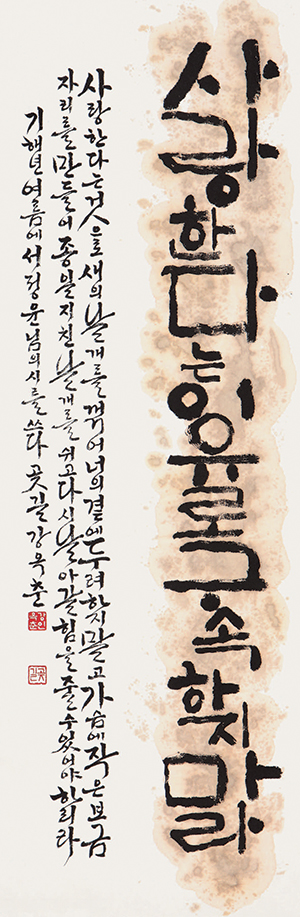 사랑한다는 이유로 구속하지 말라
사랑한다는 것으로 새의 날개를 꺾어 너의 곁에 두려 하지 말고 가슴에 작은 보금
자리를 만들어 종일 지친 날개를 쉬고 다시 날아갈 힘을 줄 수 있어야 하리라
기해년 여름에 서정윤님의 시를 쓰다